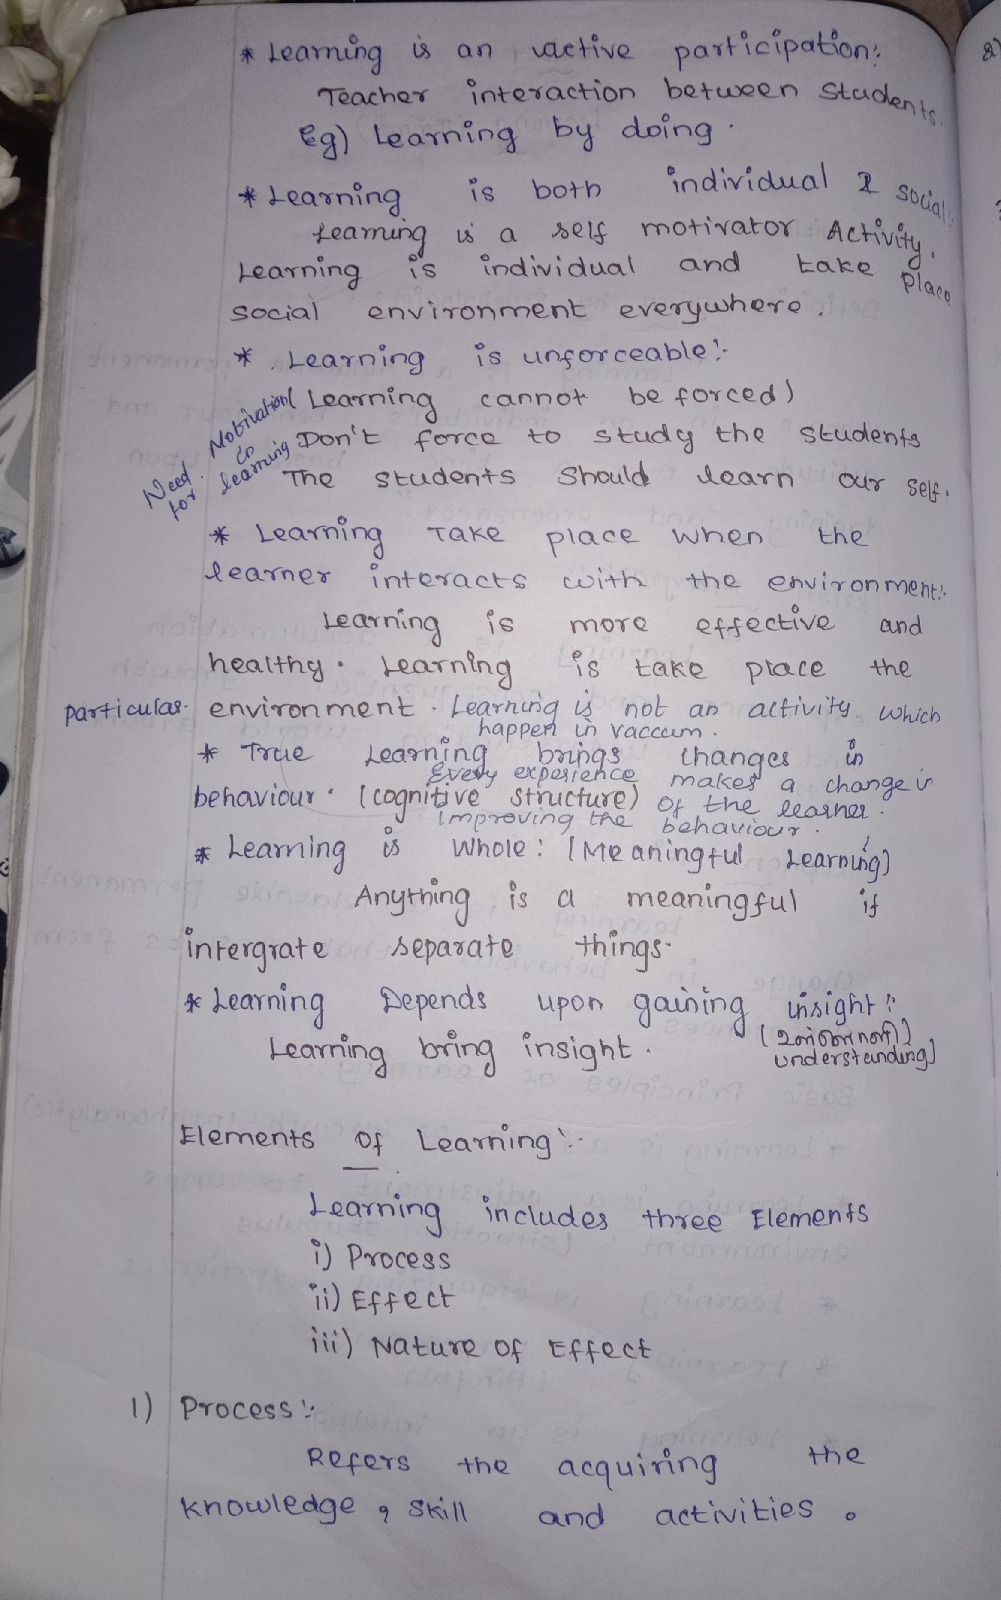 * Learning is an active participation:
Teacher interaction between students.
Eg) Learning by doing.
* Learning is both individual & social.
Learning is a self motivator Activity.
Learning is individual and take place
social environment everywhere.
* Learning is unforceable:-
(Learning cannot be forced)
Need for Motivation in learning
Don't force to study the students
The students should learn our self.
* Learning Take place when the
learner interacts with the environment:-
Learning is more effective and
healthy. Learning is take place the
particular environment. Learning is not an activity which
happen in vaccum.
* True Learning brings changes in
behaviour. (cognitive structure)
Every experience makes a change in
of the learner.
improving the behaviour.
* Learning is whole: (Meaningful Learning)
Anything is a meaningful if
intergrate separate things.
* Learning Depends upon gaining insight:-
Learning bring insight.
understanding)
Elements of Learning:-
Learning includes three Elements
i) Process
ii) Effect
iii) Nature of Effect
1) Process:-
Refers the acquiring the
knowledge, skill and activities.